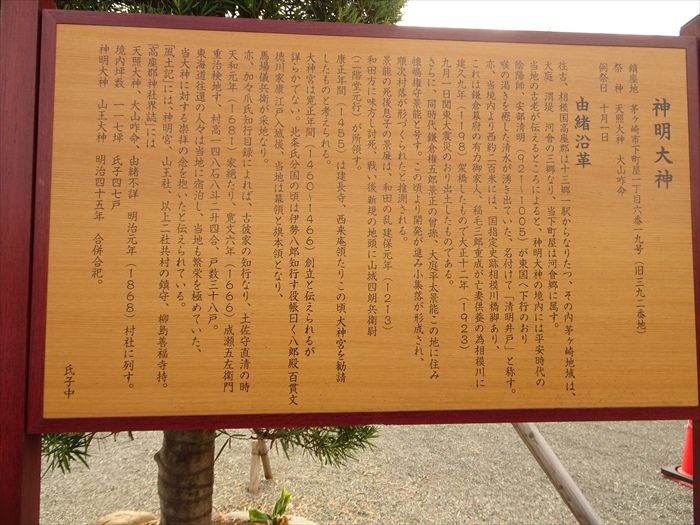 神明大神
鎮座地　茅ヶ崎市下町屋一丁目六番一九号（旧三九二番地）
祭神　天照大神　大山咋命
例祭日　十月一日
由緒沿革
往古、相模国高座郡は十三郷一駅からなりたつ、その内茅ヶ崎地域は、
大庭、渭堤、河會の三郷なり、当下町屋は河會郷に属す。
当地の古老が伝えるところによると、神明大神の境内には平安時代の
陰陽師、安部清明（921～1005）が東国へ下行のおり
喉の渇きを癒した清水が湧き出ていた、名付けて「清明井戸」と称す。
亦、当境内より西約二百米には、国指定史跡相模川橋脚あり、
これは鎌倉幕府の有力御家人、稲毛三郎重成が亡妻供養の為相模川に
建久九年（1198）架橋したもので大正十二年（1923）
九月一日関東大震災のおり出土したものである。
さらに、同時代鎌倉権五郎景正の曾孫、大庭平太景能この地に住み
懐嶋権守景能と号す。この頃より開発が進み小集落が形成され、
順次村落が形づくられたと推測される。
景能の死後息子の景廉は、和田の乱建保元年（1213）
和田方に味方し討死、戦、後新規の地頭に山城四朗兵衛尉
（二階堂元行）が所領す。
康正年間（1455）は建長寺、西来庵領たりこの頃大神宮を勧請
したものと考えられる。
大神宮は寛正年間（1460～1466）創立と伝えられるが
詳らかでない。北条氏分国の頃は伊勢八郎知行す役帳曰く八郎殿百貫文
徳川家康江戸入城後、当地は幕領と旗本領となり、
馬場儀兵衛の采地なり。
亦、加々爪氏知行目録によれば、古彼家の知行なり、土佐守直清の時
天和元年（1681）家絶たり、寛文六年（1666）成瀬五左衛門
重治検地す、村高一四八石八斗二升四合、戸数三十八戸。
東海道往還の人々は当地に宿泊し、当地も繁栄を極めていた、
当大神に対する崇拝の念を抱いたと伝えられている。
「風土記」には、神明宮、山王社、以上二社共村の鎮守、柳島善福寺持。
「高座郡神社界誌」には
天照大神、大山咋命、由緒不詳　明治元年（1868）村社に列す。
境内坪数　一一七坪　氏子四七戸
神明大神　山王大神　明治四十五年　合併合祀。
氏子中